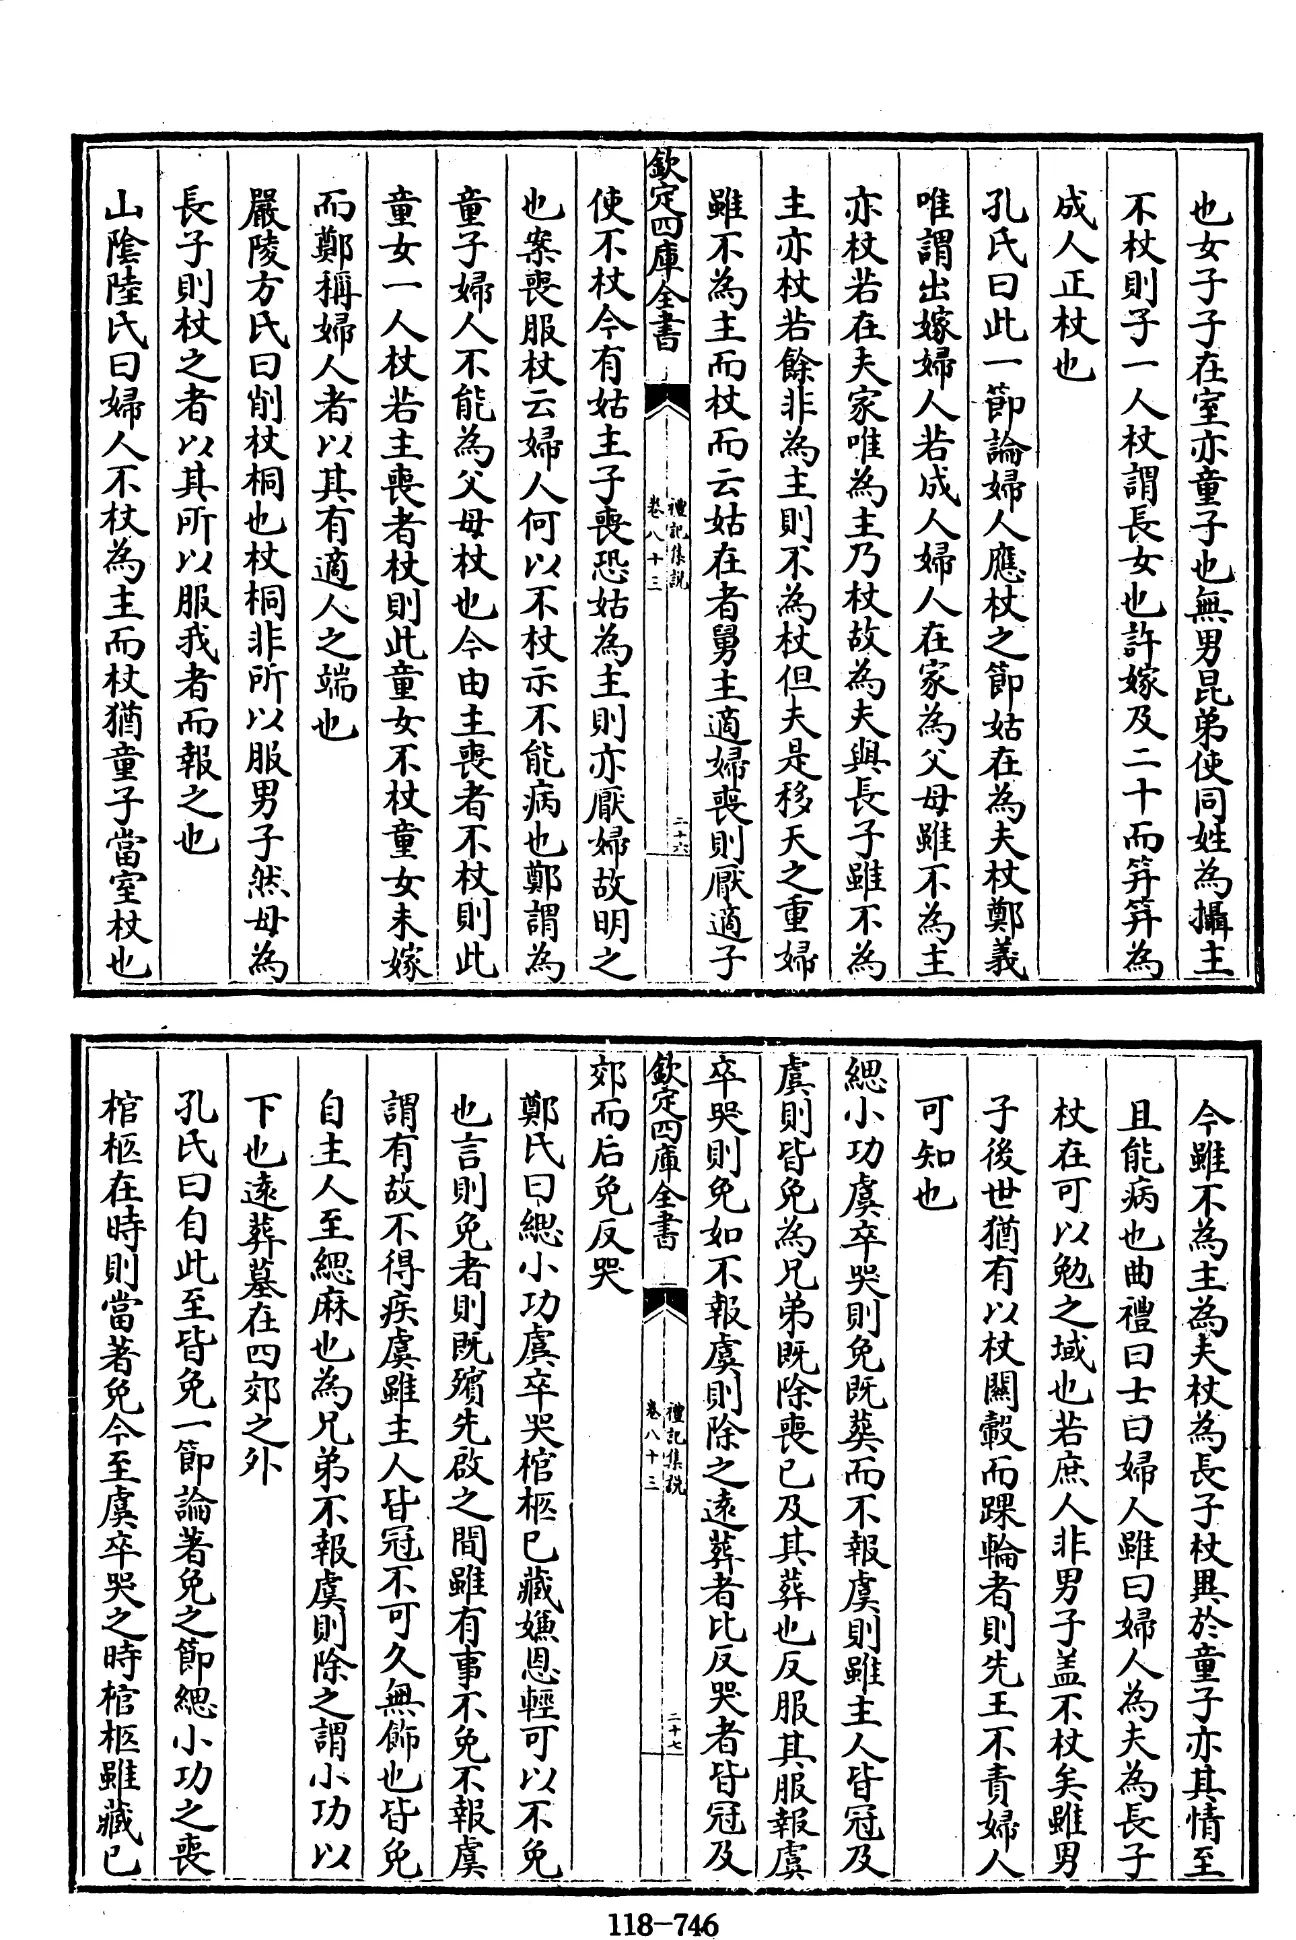 也女子子在室亦童子也無男昆弟使同姓為攝主
不杖則子一人杖謂長女也許嫁及二十而筓筓為
成人正杖也
孔氏曰此一節論婦人應杖之節姑在為夫杖鄭義
唯謂出嫁婦人若成人婦人在家為父母雖不為主
亦杖若在夫家唯為主乃杖故為夫與長子雖不為
主亦杖若餘非為主則不為杖但夫是移天之重婦
雖不為主而杖而云姑在者舅主適婦喪則厭適子
欽定四庫全書
禮記集說
卷八十三
二十六
使不杖今有姑主子喪恐姑為主則亦厭婦故明之
也案喪服杖云婦人何以不杖示不能病也鄭謂為
童子婦人不能為父母杖也今由主喪者不杖則此
童女一人杖若主喪者杖則此童女不杖童女未嫁
而鄭稱婦人者以其有適人之端也
嚴陵方氏曰削杖桐也杖桐非所以服男子然母為
長子則杖之者以其所以服我者而報之也
山陰陸氏曰婦人不杖為主而杖猶童子當室杖也
今雖不為主為夫杖為長子杖異於童子亦其情至
且能病也曲禮曰士曰婦人雖曰婦人為夫為長子
杖在可以勉之域也若庶人非男子盖不杖矣雖男
子後世猶有以杖關轂而踝輪者則先王不責婦人
可知也
緦小功虞卒哭則免既葬而不報虞則雖主人皆冠及
虞則皆免為兄弟既除喪已及其葬也反服其服報虞
卒哭則免如不報虞則除之逺葬者比反哭者皆冠及
欽定四庫全書
禮記集說
卷八十三
二十七
郊而后免反哭
鄭氏曰緦小功虞卒哭棺柩已藏嫌恩輕可以不免
也言則免者則既殯先啟之間雖有事不免不報虞
謂有故不得疾虞雖主人皆冠不可久無飾也皆免
自主人至緦麻也為兄弟不報虞則除之謂小功以
下也逺葬墓在四郊之外
孔氏曰自此至皆免一節論著免之節緦小功之喪
棺柩在時則當著免今至虞卒哭之時棺柩雖藏已
118-746